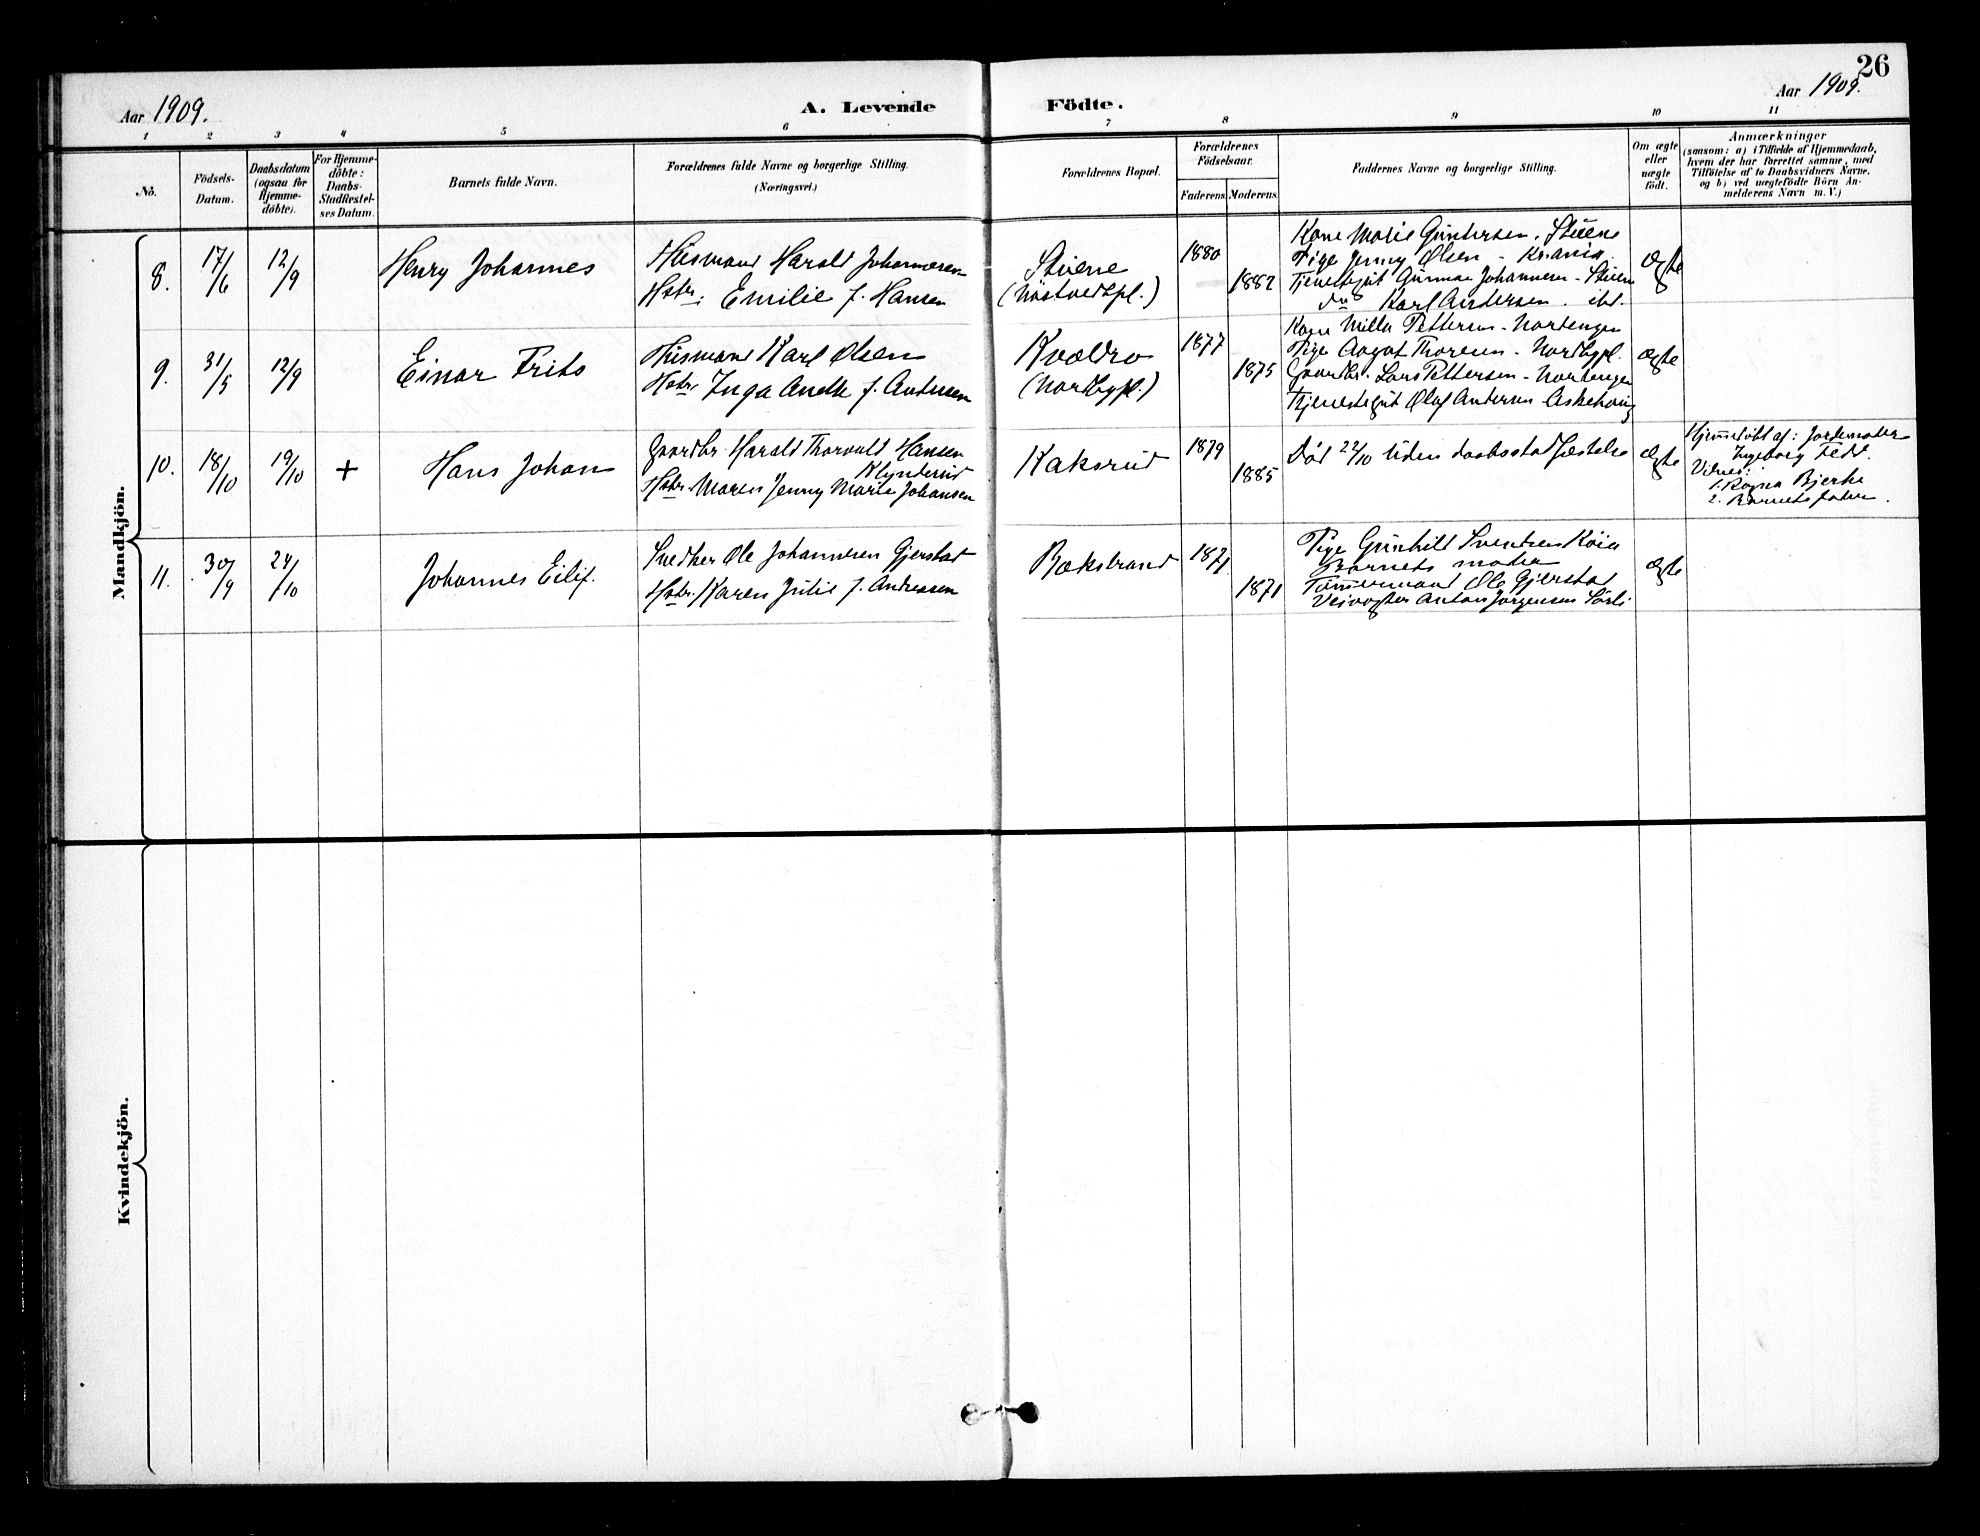 26
Aar 1909.
A. Levende
Födte.
Aar 1909.
1 2 3 4 5 6 7 8 9 10 11
No.
Födsels-Datum.
Daabsdatum (ogsaa for Hjemme-döbte).
For Hjemme-döbte: Daabs-Stadfæstelses Datum.
Barnets fulde Navn.
Forældrenes fulde Navne og borgerlige Stilling.
(Næringsvei.)
Forældrenes Bopæl.
Forældrenes Födselsaar.
Faderens Moderens
Faddernes Navne og borgerlige Stilling.
Om ægte eller uægte födt.
Anmærkninger
(saasom: a) i Tilfælde af Hjemmedaab,
hvem der har forrettet samme, med
Tilföielse af to Daabsvidners Navne.
og b) ved uægtefödte Börn An-
melderens Navn m. V.)
Mandkjön.
8. 17/6 12/9 Henry Johannes
Husmand Harald Johannesen
Hstr: Emilie f. Hansen
Stuene
(Nöstvedtpl.)
1880
1882
Kone Marie Gundersen. Stuene
Pige Jenny Olsen - Kr.ania.
Tjenestegut Gunnar Johannesen - Stuene
do Karl Andersen. ibd.
ægte
9. 31/5 12/9 Einar Frits
Husmand Karl Olsen
Hstr Inga f. Andersen
Kvædro
(Nordbypl.)
1877
1875
Kone Milla Pettersen - Nordengen
Pige Aagot Thoresen - Nordbypl.
Gaardbr. Lars Pettersen - Nordengen
Tjenestegut Olaf Andersen - Askehaug
ægte
10. 18/10 19/10 + Hans Johan
Gaardbr. Harald Thorvald Hansen
Klynderud
Hstr. Maren Jenny Marie Johansen
Kaksrud
1879
1885
Död 22/10 uden daabsstadfæstelse
ægte
Hjemmedöbt af: Jordemoder
Ingeborg
Vidner:
1. Ragna Bjerke
2. Barnets fader.
11. 30/9 24/10 Johannes Eilif.
Snedker Ole Johannesen Gjerstad
Hstr. Karen Julie f. Andreasen
Bækstrand
1871
1871
Pige Gunhild Svendsen
Barnets moder
Tömmermand Ole Gjerstad
Veivogter Anton Jörgensen Sörli
ægte
Kvindekjön.